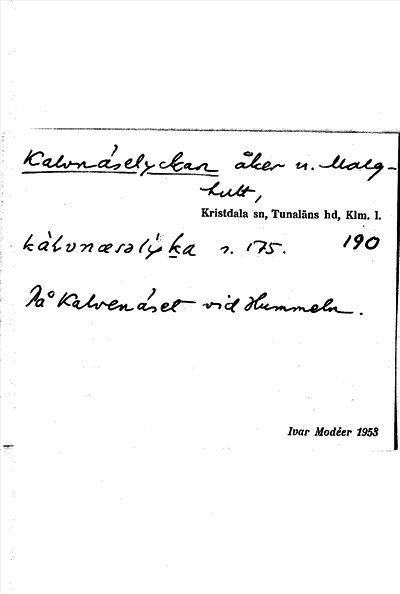 Kalvnäselyckan åker u. Malg-
hult,
Kristdala sn, Tunaläns hd, Klm. l.
kàlvnæsəly̆ka s. 175. 190
På Kalvenäset vid Hummeln.
Ivar Modéer 1953